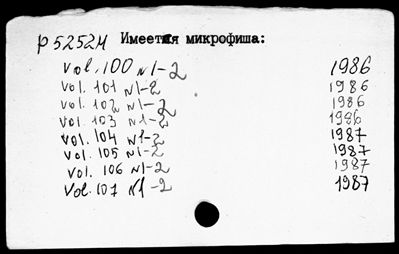 P5252M Имеется микрофиша:
Vol. 100 N1-2 1986
Vol. 101 N1-2 1986
Vol. 102 N1-2 1986
Vol. 103 N1-2 1986
Vol. 104 N1-2 1987
Vol. 105 N1-2 1987
Vol. 106 N1-2 1987
Vol. 107 N1-2 1987